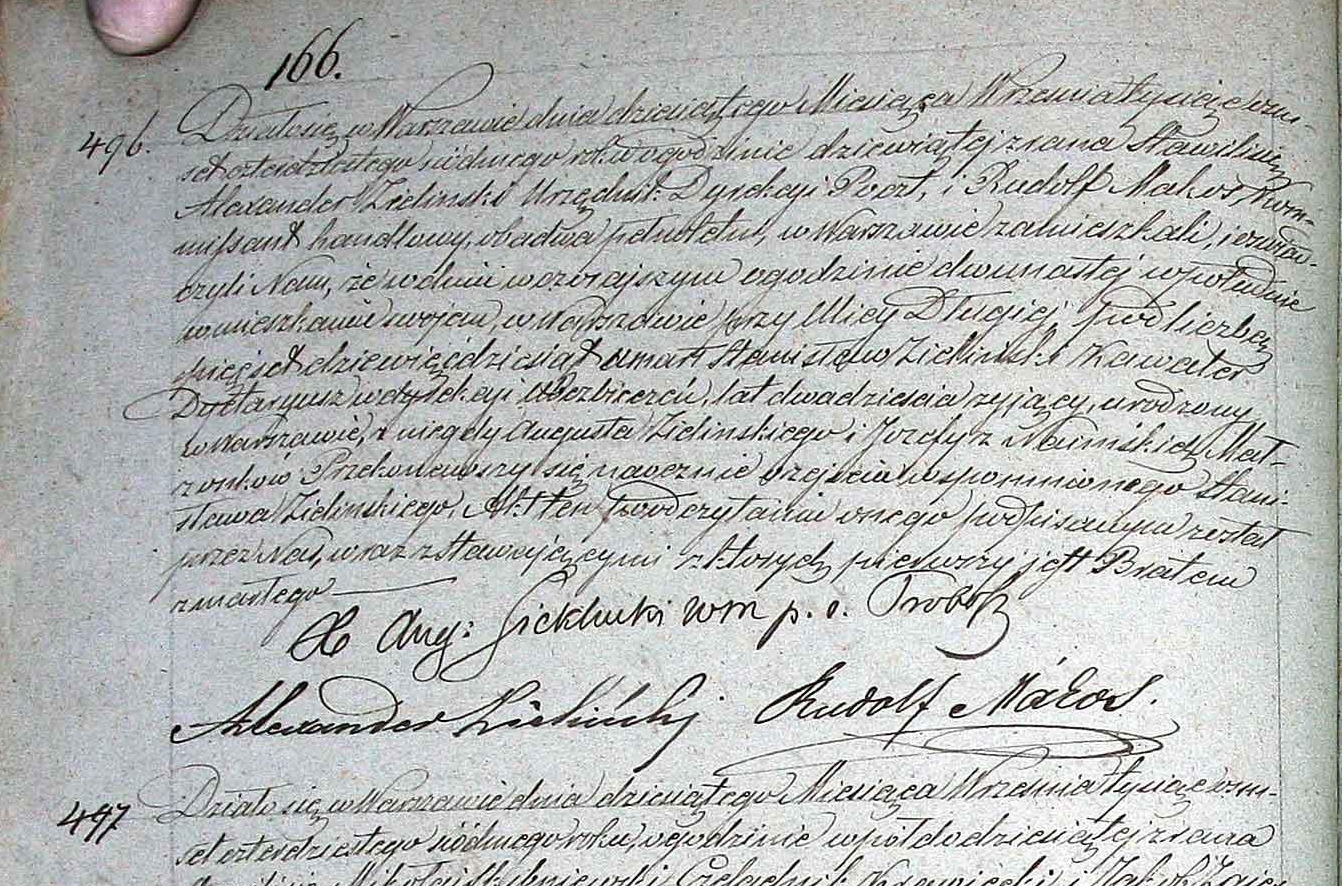 166.
496. Działo się w Warszawie dnia dziesiątego Miesiąca Września tysiąc ośm-
set czterdziestego siódmego roku o godzinie dziewiątej zrana Stawili się
Alexander Zieliński Urzędnik Dyrekcyi Poczt, i Rudolf Makos Kom-
missant handlowy, obadwa pełnoletni, w Warszawie zamieszkali, i oświad-
czyli Nam, że w dniu wczorajszym o godzinie dwunastej w południe
w mieszkaniu swojem, w Warszawie przy Ulicy Długiej pod liczbą
pięćset dziewięćdziesiąt umarł Stanisław Zieliński Kawaler
Dyetaryusz w dyrekcyi Ubezpieczeń, lat dwadzieścia żyjący, urodzony
w Warszawie, z niegdy Augusta Zielińskiego i Jozefy z Małż-
żonków Przekonawszy się naocznie o zejściu wspomnionego Stani-
sława Zielińskiego, Akt ten po odczytaniu onego podpisanym został
przez Nas, wraz z stawającymi z których pierwszy jest Bratem
zmarłego
X Aug: p. o. Probosz
Alexander Zieliński Rudolf Mákos.
497 Działo się w Warszawie dnia dziesiątego Miesiąca Września tysiąc ośm-
set czterdziestego siódmego roku, o godzinie wpół do dziesiątej z rana
Mikołaj Czeladnik Krawiecki i Jakób